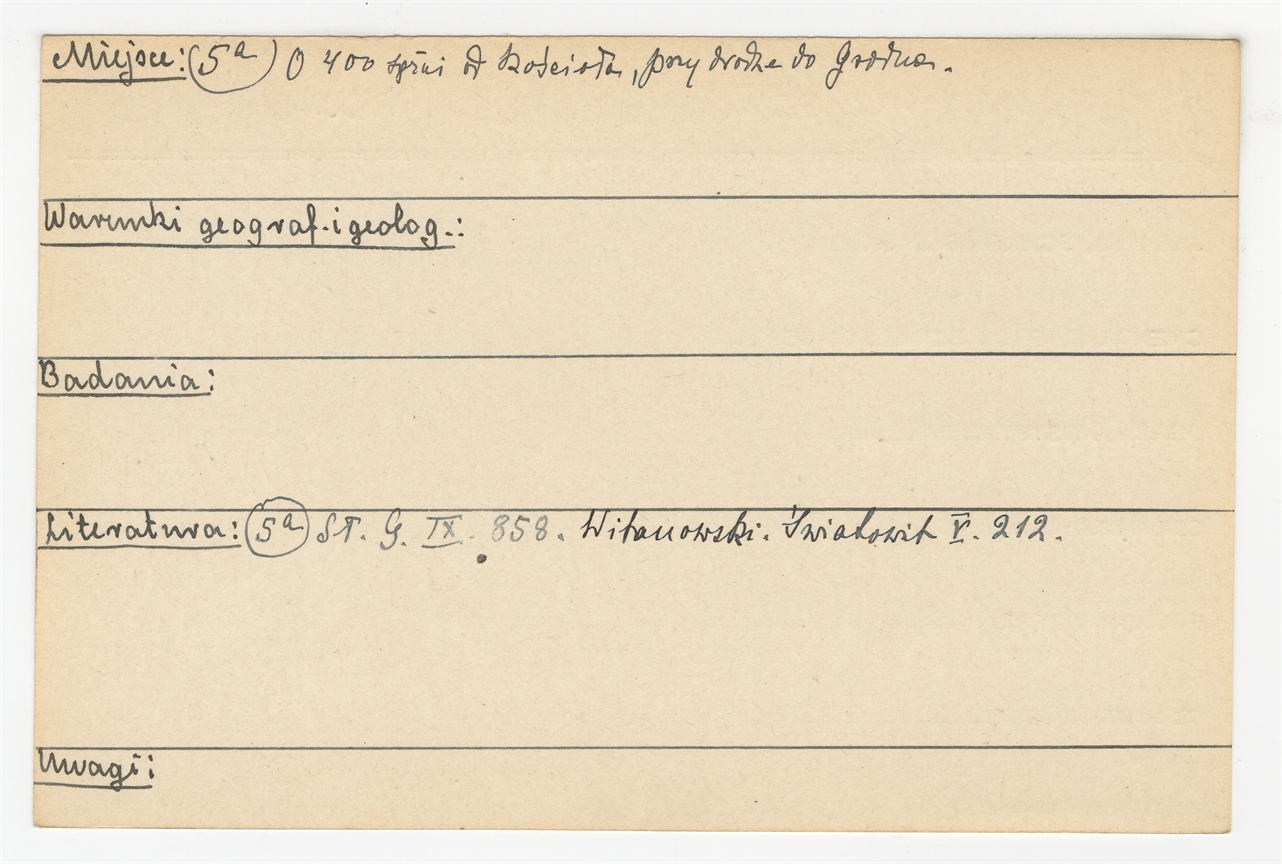 Miejsce: (5a) O 400 sążni od kościoła, przy drodze do Grodna.
Warunki geograf. i geolog.:
Badania:
Literatura: (5a) Sł. G. IX. 858. Witanowski. Światowit V. 212.
Uwagi: